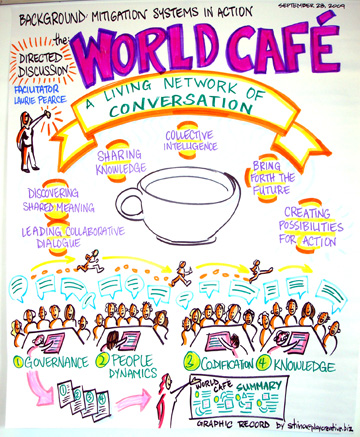 SEPTEMBER 28, 2009
BACKGROUND MITIGATION SYSTEMS IN ACTION
the:
WORLD CAFÉ
DIRECTED
DISCUSSION
FACILITATOR
LAURIE PEARCE
A LIVING NETWORK OF
CONVERSATION
COLLECTIVE
INTELLIGENCE
SHARING
KNOWLEDGE
BRING
FORTH THE
FUTURE
DISCOVERING
SHARED MEANING
CREATING
POSSIBILITIES
FOR ACTION
LEADING COLLABORATIVE
DIALOGUE
1 GOVERNANCE
2 PEOPLE
DYNAMICS
3 CODIFICATION
4 KNOWLEDGE
1 2 3 4
WORLD
CAFE
SUMMARY
GRAPHIC RECORD by